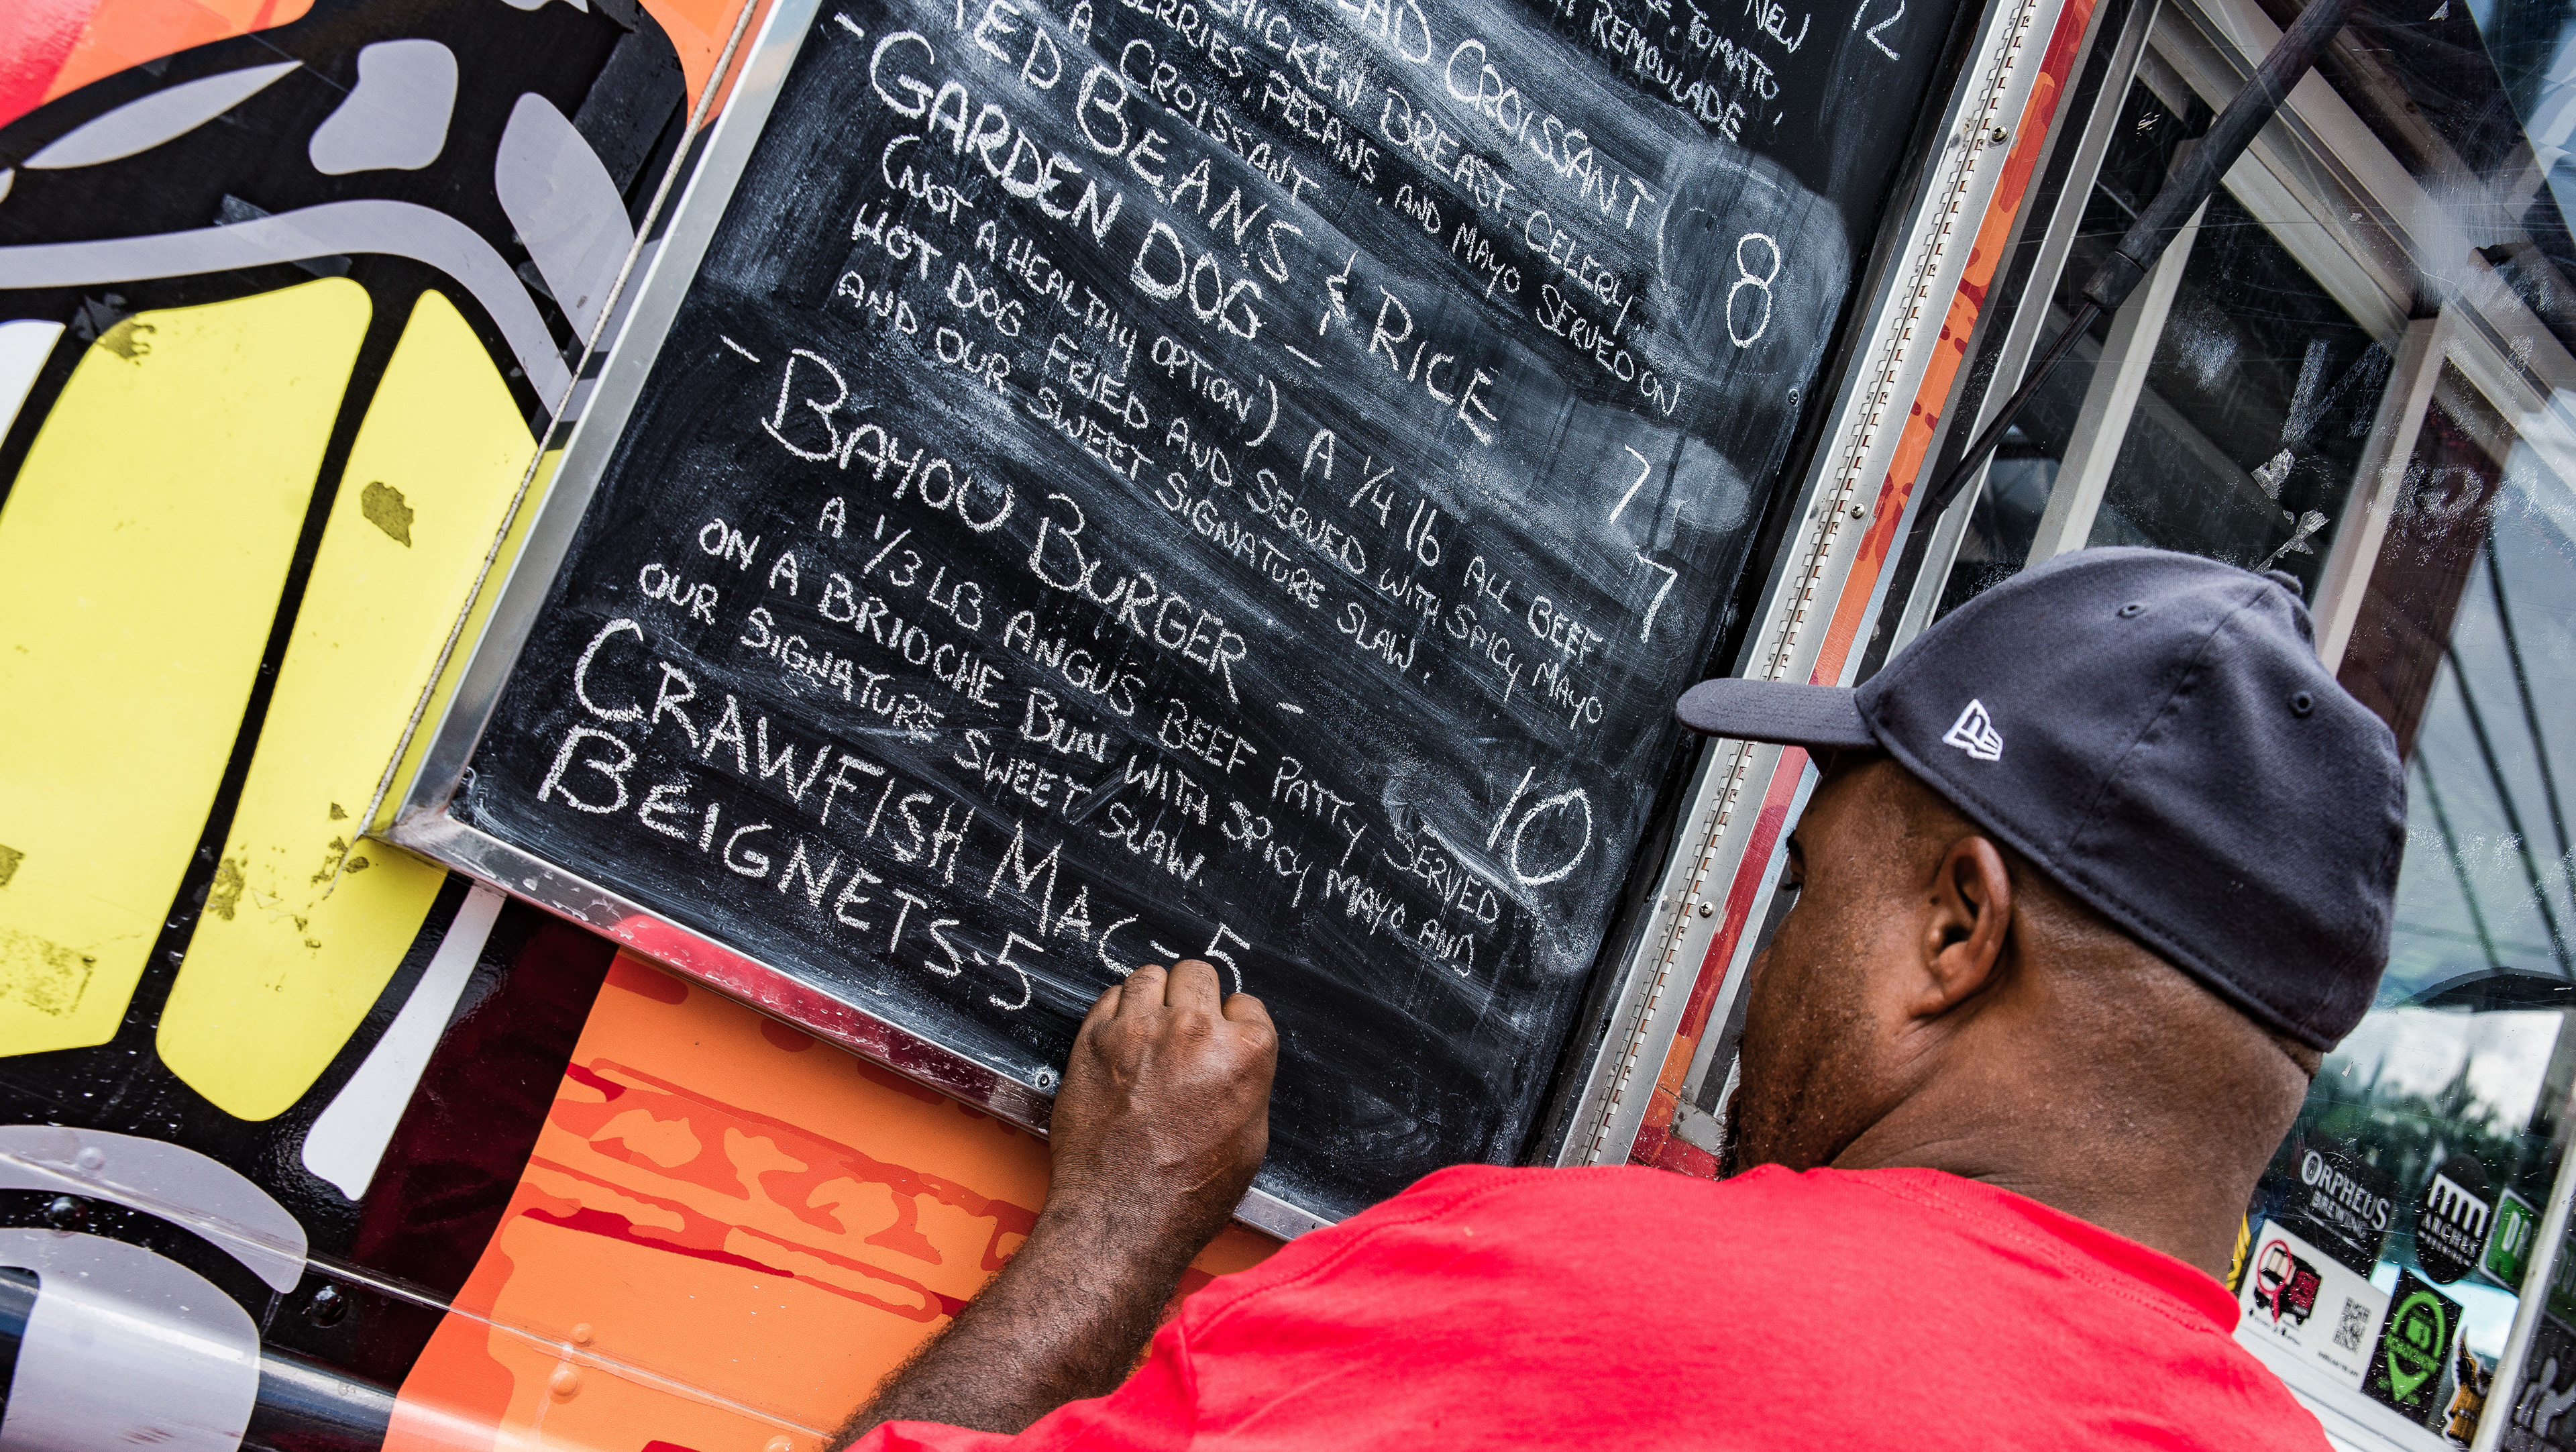 NEW 12
TOMATO,
REMOULADE
CROISSANT 8
CHICKEN BREAST, CELERY,
PECANS, AND MAYO SERVED ON
A CROISSANT
RED BEANS & RICE 7
- GARDEN DOG - 7
(NOT A HEALTHY OPTION') A 1/4 lb ALL BEEF
HOT DOG FRIED AND SERVED WITH SPICY MAYO
AND OUR SWEET SIGNATURE SLAW.
- BAYOU BURGER - 10
A 1/3 LB ANGUS BEEF PATTY SERVED
ON A BRIOCHE BUN WITH SPICY MAYO AND
OUR SIGNATURE SWEET SLAW.
CRAWFISH MAC-5
BEIGNETS-5
ORPHEUS
BREWING
ARCHES